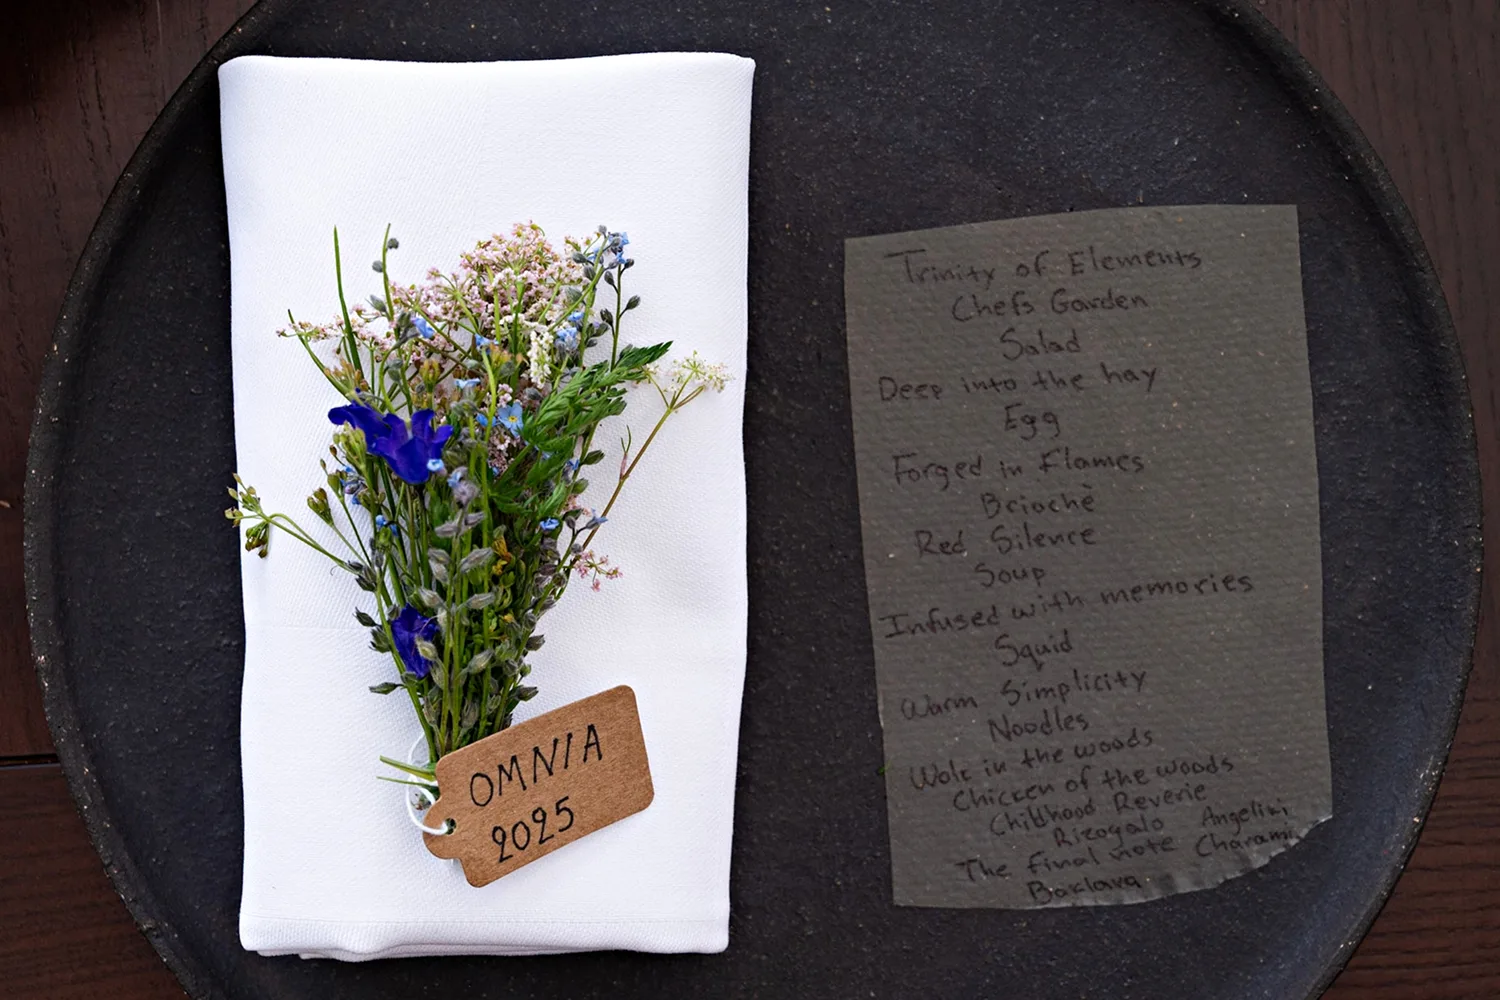 OMNIA
2025
Trinity of Elements
Chefs Garden
Salad
Deep into the hay
Egg
Forged in Flames
Briochè
Red Silence
Soup
Infused with memories
Squid
Warm Simplicity
Noodles
in the woods
Chicken of the woods
Childhood Reverie
Rizogalo
The final note
Baklava
Angelini